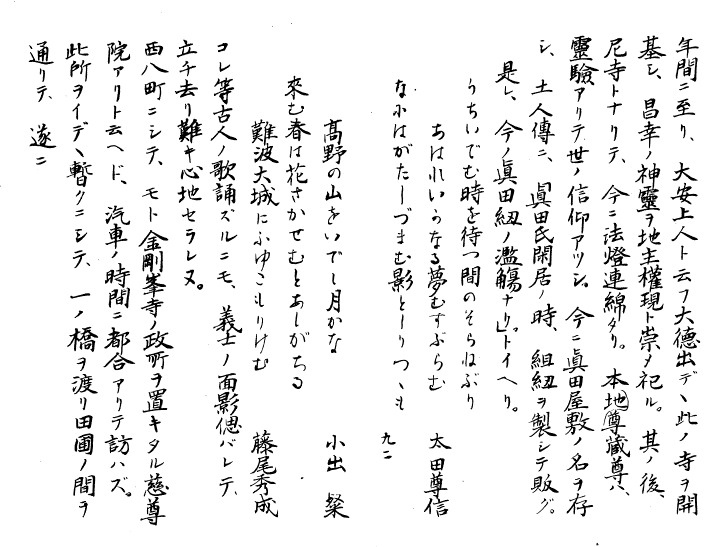 年間ニ至リ、大安上人ト云フ大德出デヽ此ノ寺ヲ開
基シ、昌幸ノ神靈ヲ地主權現ト崇メ祀ル。其ノ後、
尼寺トナリテ、今ニ法燈連綿タリ。本地尊藏尊ハ、
靈驗アリテ世ノ信仰アツシ。今ニ眞田屋敷ノ名ヲ存
シ、土人傳ニ、「眞田氏閑居ノ時、組紐ヲ製シテ販グ。
是レ、今ノ眞田紐ノ濫觴ナリ」。トイヘリ。
うちいでむ時を待つ間のそらねぶり
あはれいかなる夢むすぶらむ 太田尊信
なにはがたしづまむ影としりつゝも 九二
高野の山をいでし月かな 小出粲
來む春は花さかせむとあしがちる
難波大城にふゆごもりけむ 藤尾秀成
コレ等古人ノ歌誦ズルニモ、義士ノ面影偲バレテ、
立チ去リ難キ心地セラレヌ。
西八町ニシテ、モト金剛峯寺ノ政所ヲ置キタル慈尊
院アリト云ヘド、汽車ノ時間ニ都合アリテ訪ハズ。
此所ヲイデヽ暫クニシテ、一ノ橋ヲ渡リ田圃ノ間ヲ
通リテ、遂ニ